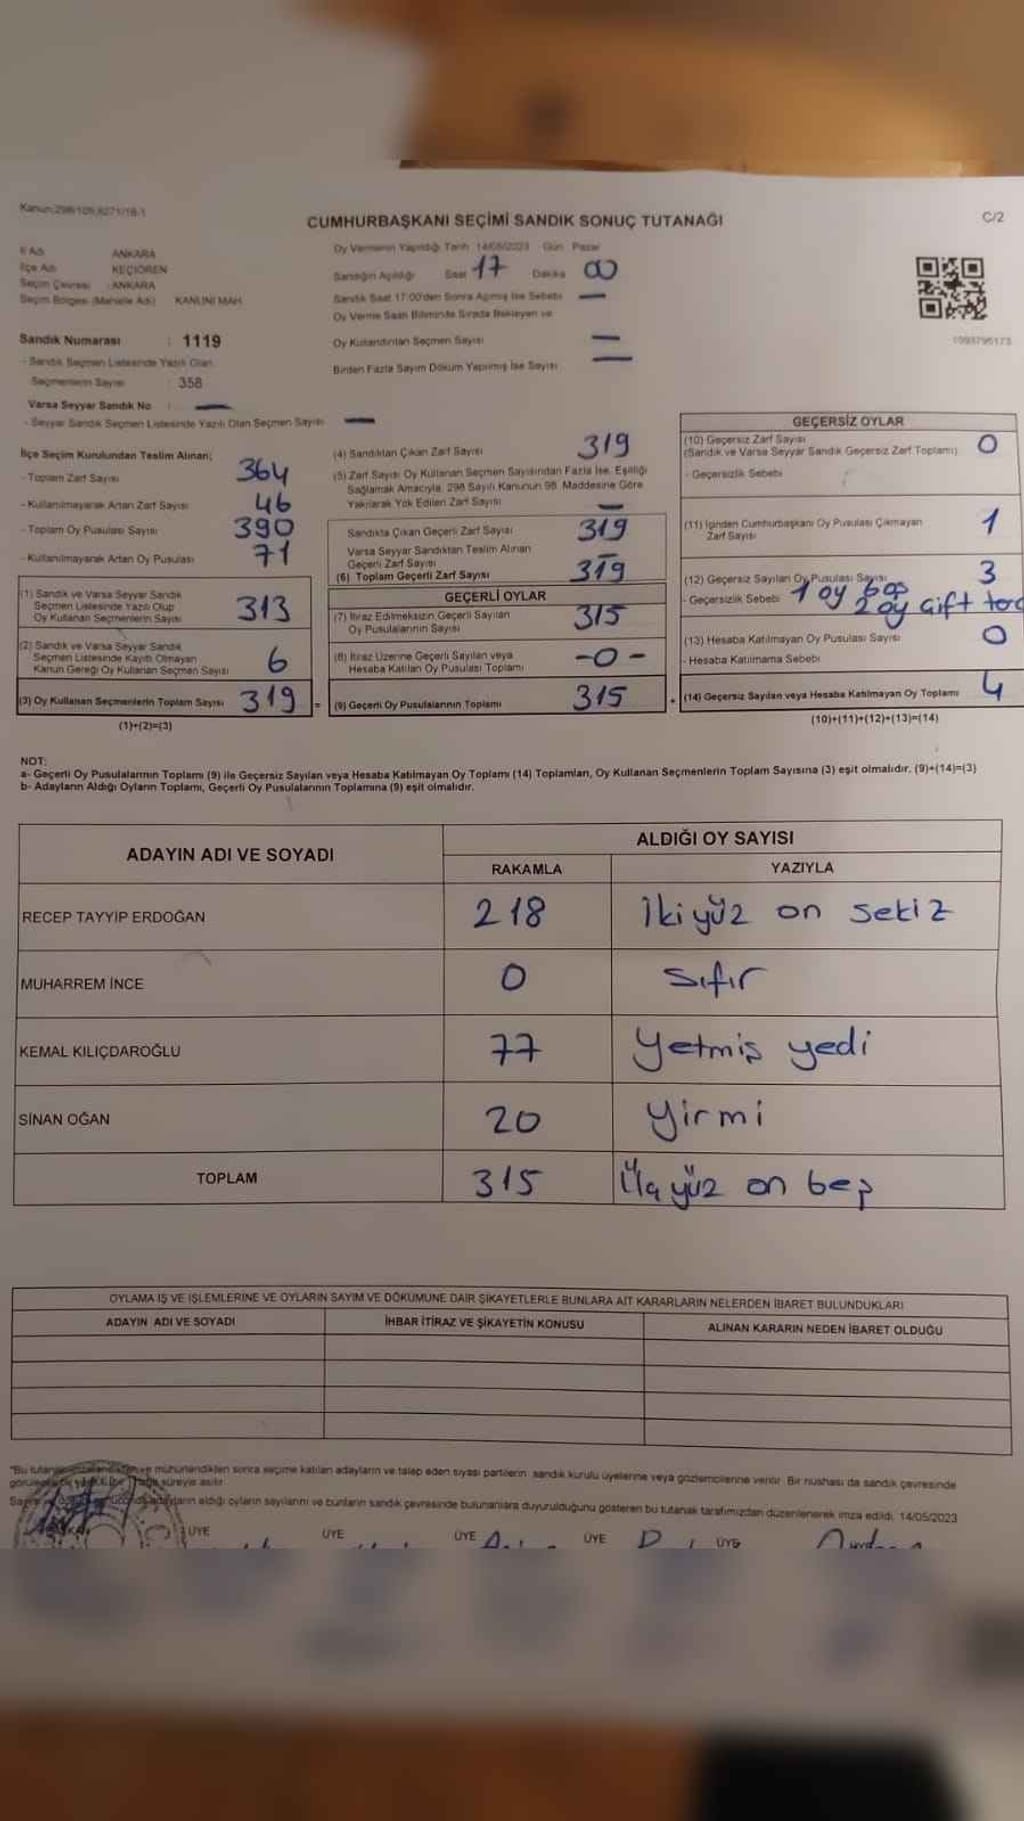 Kanun:298/105,6271/18-1
CUMHURBAŞKANI SEÇİMİ SANDIK SONUÇ TUTANAĞI
C/2
İl Adı ANKARA
İlçe Adı KEÇİÖREN
Seçim Çevresi : ANKARA
Seçim Bölgesi (Mahalle Adı) KANUNİ MAH.
Oy Vermenin Yapıldığı Tarih 14/05/2023 Gün Pazar
Sandığın Açıldığı Saat 17 Dakika 00
Sandık Saat 17:00'den Sonra Açılmış İse Sebebi —
Oy Verme Saati Bitiminde Sırada Bekleyen ve
Oy Kullandırılan Seçmen Sayısı —
Birden Fazla Sayım Döküm Yapılmış İse Sayısı —
Sandık Numarası : 1119
- Sandık Seçmen Listesinde Yazılı Olan
Seçmenlerin Sayısı : 358
Varsa Seyyar Sandık No : —
- Seyyar Sandık Seçmen Listesinde Yazılı Olan Seçmen Sayısı —
İlçe Seçim Kurulundan Teslim Alınan;
- Toplam Zarf Sayısı 364
- Kullanılmayarak Artan Zarf Sayısı 46
- Toplam Oy Pusulası Sayısı 390
- Kullanılmayarak Artan Oy Pusulası 71
(1) Sandık ve Varsa Seyyar Sandık
Seçmen Listesinde Yazılı Olup
Oy Kullanan Seçmenlerin Sayısı 313
(2) Sandık ve Varsa Seyyar Sandık
Seçmen Listesinde Kayıtlı Olmayan
Kanun Gereği Oy Kullanan Seçmen Sayısı 6
(3) Oy Kullanan Seçmenlerin Toplam Sayısı 319 =
(1)+(2)=(3)
(4) Sandıktan Çıkan Zarf Sayısı 319
(5) Zarf Sayısı Oy Kullanan Seçmen Sayısından Fazla İse, Eşitliği
Sağlamak Amacıyla, 298 Sayılı Kanunun 98. Maddesine Göre
Yakılarak Yok Edilen Zarf Sayısı —
Sandıkta Çıkan Geçerli Zarf Sayısı 319
Varsa Seyyar Sandıktan Teslim Alınan
Geçerli Zarf Sayısı —
(6) Toplam Geçerli Zarf Sayısı 319
GEÇERLİ OYLAR
(7) İtiraz Edilmeksizin Geçerli Sayılan
Oy Pusulalarının Sayısı 315
(8) İtiraz Üzerine Geçerli Sayılan veya
Hesaba Katılan Oy Pusulası Toplamı -0-
(9) Geçerli Oy Pusulalarının Toplamı 315 +
GEÇERSİZ OYLAR
(10) Geçersiz Zarf Sayısı 0
(Sandık ve Varsa Seyyar Sandık Geçersiz Zarf Toplamı)
- Geçersizlik Sebebi
(11) İçinden Cumhurbaşkanı Oy Pusulası Çıkmayan
Zarf Sayısı 1
(12) Geçersiz Sayılan Oy Pusulası Sayısı 3
- Geçersizlik Sebebi 1 oy boş
2 oy çift
(13) Hesaba Katılmayan Oy Pusulası Sayısı 0
- Hesaba Katılmama Sebebi
(14) Geçersiz Sayılan veya Hesaba Katılmayan Oy Toplamı 4
(10)+(11)+(12)+(13)=(14)
NOT:
a- Geçerli Oy Pusulalarının Toplamı (9) ile Geçersiz Sayılan veya Hesaba Katılmayan Oy Toplamı (14) Toplamları, Oy Kullanan Seçmenlerin Toplam Sayısına (3) eşit olmalıdır. (9)+(14)=(3)
b- Adayların Aldığı Oyların Toplamı, Geçerli Oy Pusulalarının Toplamına (9) eşit olmalıdır.
ADAYIN ADI VE SOYADI
ALDIĞI OY SAYISI
RAKAMLA YAZIYLA
RECEP TAYYİP ERDOĞAN 218 İkiyüz on sekiz
MUHARREM İNCE 0 Sıfır
KEMAL KILIÇDAROĞLU 77 Yetmiş yedi
SİNAN OĞAN 20 Yirmi
TOPLAM 315 Üçyüz on beş
OYLAMA İŞ VE İŞLEMLERİNE VE OYLARIN SAYIM VE DÖKÜMÜNE DAİR ŞİKAYETLERLE BUNLARA AİT KARARLARIN NELERDEN İBARET BULUNDUKLARI
ADAYIN ADI VE SOYADI İHBAR İTİRAZ VE ŞİKAYETİN KONUSU ALINAN KARARIN NEDEN İBARET OLDUĞU
mühürlendikten sonra seçime katılan adayların ve talep eden siyasi partilerin sandık kurulu üyelerine veya gözlemcilerine verilir. Bir nüshası da sandık çevresinde
süreyle asılır.
adayların aldığı oyların sayılarını ve bunların sandık çevresinde bulunanlara duyurulduğunu gösteren bu tutanak tarafımızdan düzenlenerek imza edildi. 14/05/2023
ÜYE ÜYE ÜYE ÜYE ÜYE